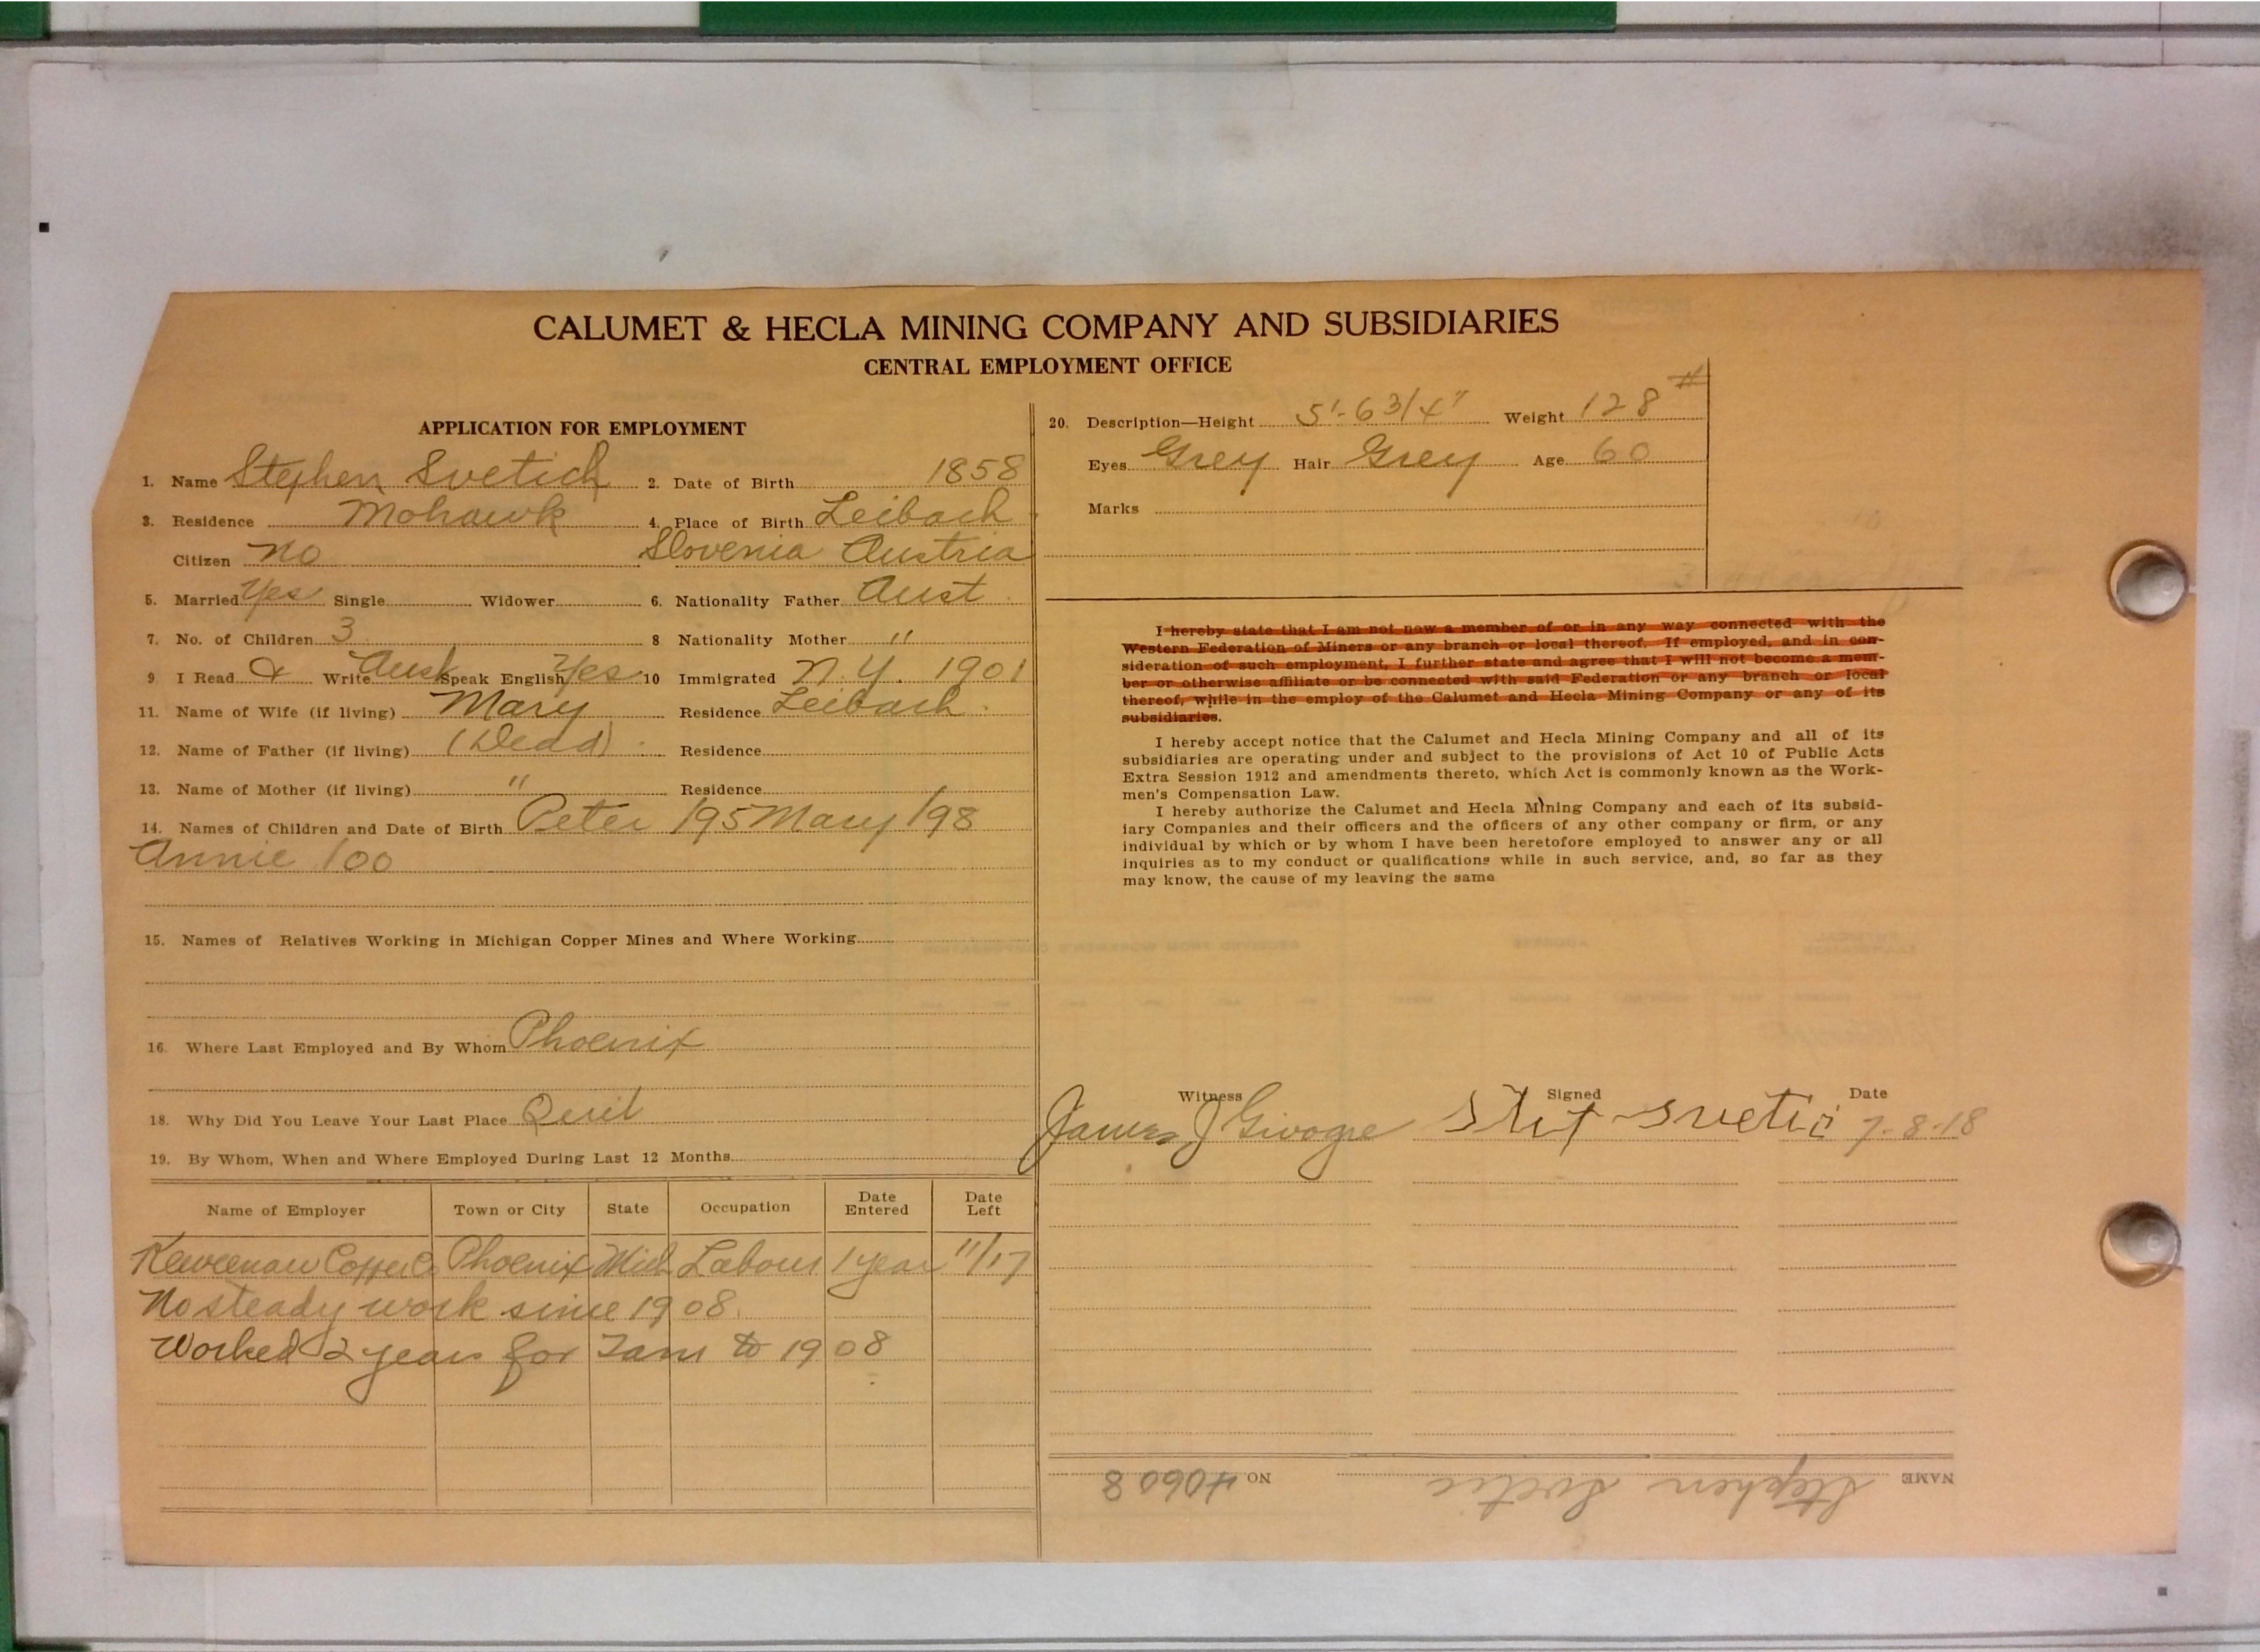 CALUMET & HECLA MINING COMPANY AND SUBSIDIARIES
CENTRAL EMPLOYMENT OFFICE
APPLICATION FOR EMPLOYMENT
1. Name Stephen Svetich 2. Date of Birth 1858
3. Residence Mohawk 4. Place of Birth Leibach
Citizen No Slovenia Austria
5. Married Yes Single Widower 6. Nationality Father Aust
7. No. of Children 3 8 Nationality Mother "
9 I Read & Write Aust Speak English Yes 10 Immigrated N.Y. 1901
11. Name of Wife (if living) Mary Residence Leibach.
12. Name of Father (if living) (Dead) Residence
13. Name of Mother (if living) " Residence
14. Names of Children and Date of Birth Peter /95 Mary /98
Annie /00
15. Names of Relatives Working in Michigan Copper Mines and Where Working
16. Where Last Employed and By Whom Phoenix
18. Why Did You Leave Your Last Place
19. By Whom, When and Where Employed During Last 12 Months
Name of Employer Town or City State Occupation Date Entered Date Left
Keweenaw Copper Co Phoenix Mich Labour 1 year 11/17
No steady work since 1908.
Worked 2 years for Tam to 1908
20. Description—Height 5'-6 3/4" Weight 128 #
Eyes Grey Hair Grey Age 60
Marks
I hereby state that I am not now a member of or in any way connected with the
Western Federation of Miners or any branch or local thereof. If employed, and in con-
sideration of such employment, I further state and agree that I will not become a mem-
ber or otherwise affiliate or be connected with said Federation or any branch or local
thereof, while in the employ of the Calumet and Hecla Mining Company or any of its
subsidiaries.
I hereby accept notice that the Calumet and Hecla Mining Company and all of its
subsidiaries are operating under and subject to the provisions of Act 10 of Public Acts
Extra Session 1912 and amendments thereto, which Act is commonly known as the Work-
men's Compensation Law.
I hereby authorize the Calumet and Hecla Mining Company and each of its subsid-
iary Companies and their officers and the officers of any other company or firm, or any
individual by which or by whom I have been heretofore employed to answer any or all
inquiries as to my conduct or qualifications while in such service, and, so far as they
may know, the cause of my leaving the same
Witness Signed Date
James J 7-8-18
NAME Stephen Svetic NO 40608